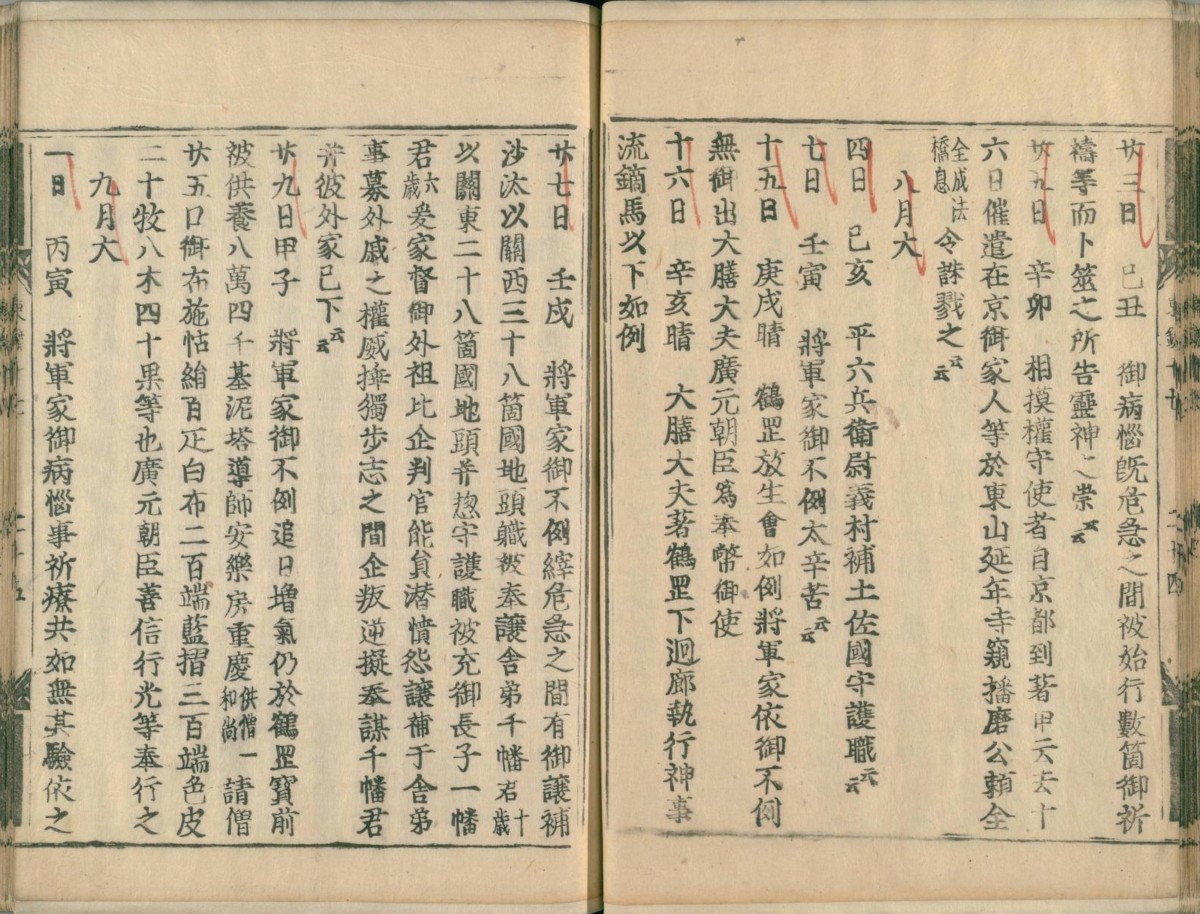 廿三日　己丑　御病惱旣危急之間被始行數箇御祈
禱等而卜筮之所告靈神之祟云云
廿五日　辛卯　相摸權守使者自京都到著申云去十
六日催遣在京御家人等於東山延年寺窺播磨公賴全
全成法橋息令誅戮之云云
八月大
四日　己亥　平六兵衛尉義村補土佐國守護職云云
七日　壬寅　將軍家御不例太辛苦云云
十五日　庚戌晴　鶴罡放生會如例將軍家依御不例
無御出大膳大夫廣元朝臣爲奉幣御使
十六日　辛亥晴　大膳大夫著鶴罡下迴廊執行神事
流鏑馬以下如例
廿七日　壬戌　將軍家御不例縡危急之間有御讓補
沙汰以關西三十八箇國地頭職被奉讓舍弟千幡君十歲
以關東二十八箇國地頭幷惣守護職被充御長子一幡
君六歲爰家督御外祖比企判官能員潜憤怨讓補于舍弟
事募外戚之權威挿獨步志之間企叛逆擬奉謀千幡君
幷彼外家已下云云
廿九日甲子　將軍家御不例追日增氣仍於鶴罡寶前
被供養八萬四千基泥塔導師安樂房重慶供僧和尚一請僧
廿五口御布施帖絹百疋白布二百端藍摺三百端色皮
二十牧八木四十果等也廣元朝臣善信行光等奉行之
九月大
一日　丙寅　將軍家御病惱事祈療共如無其驗依之